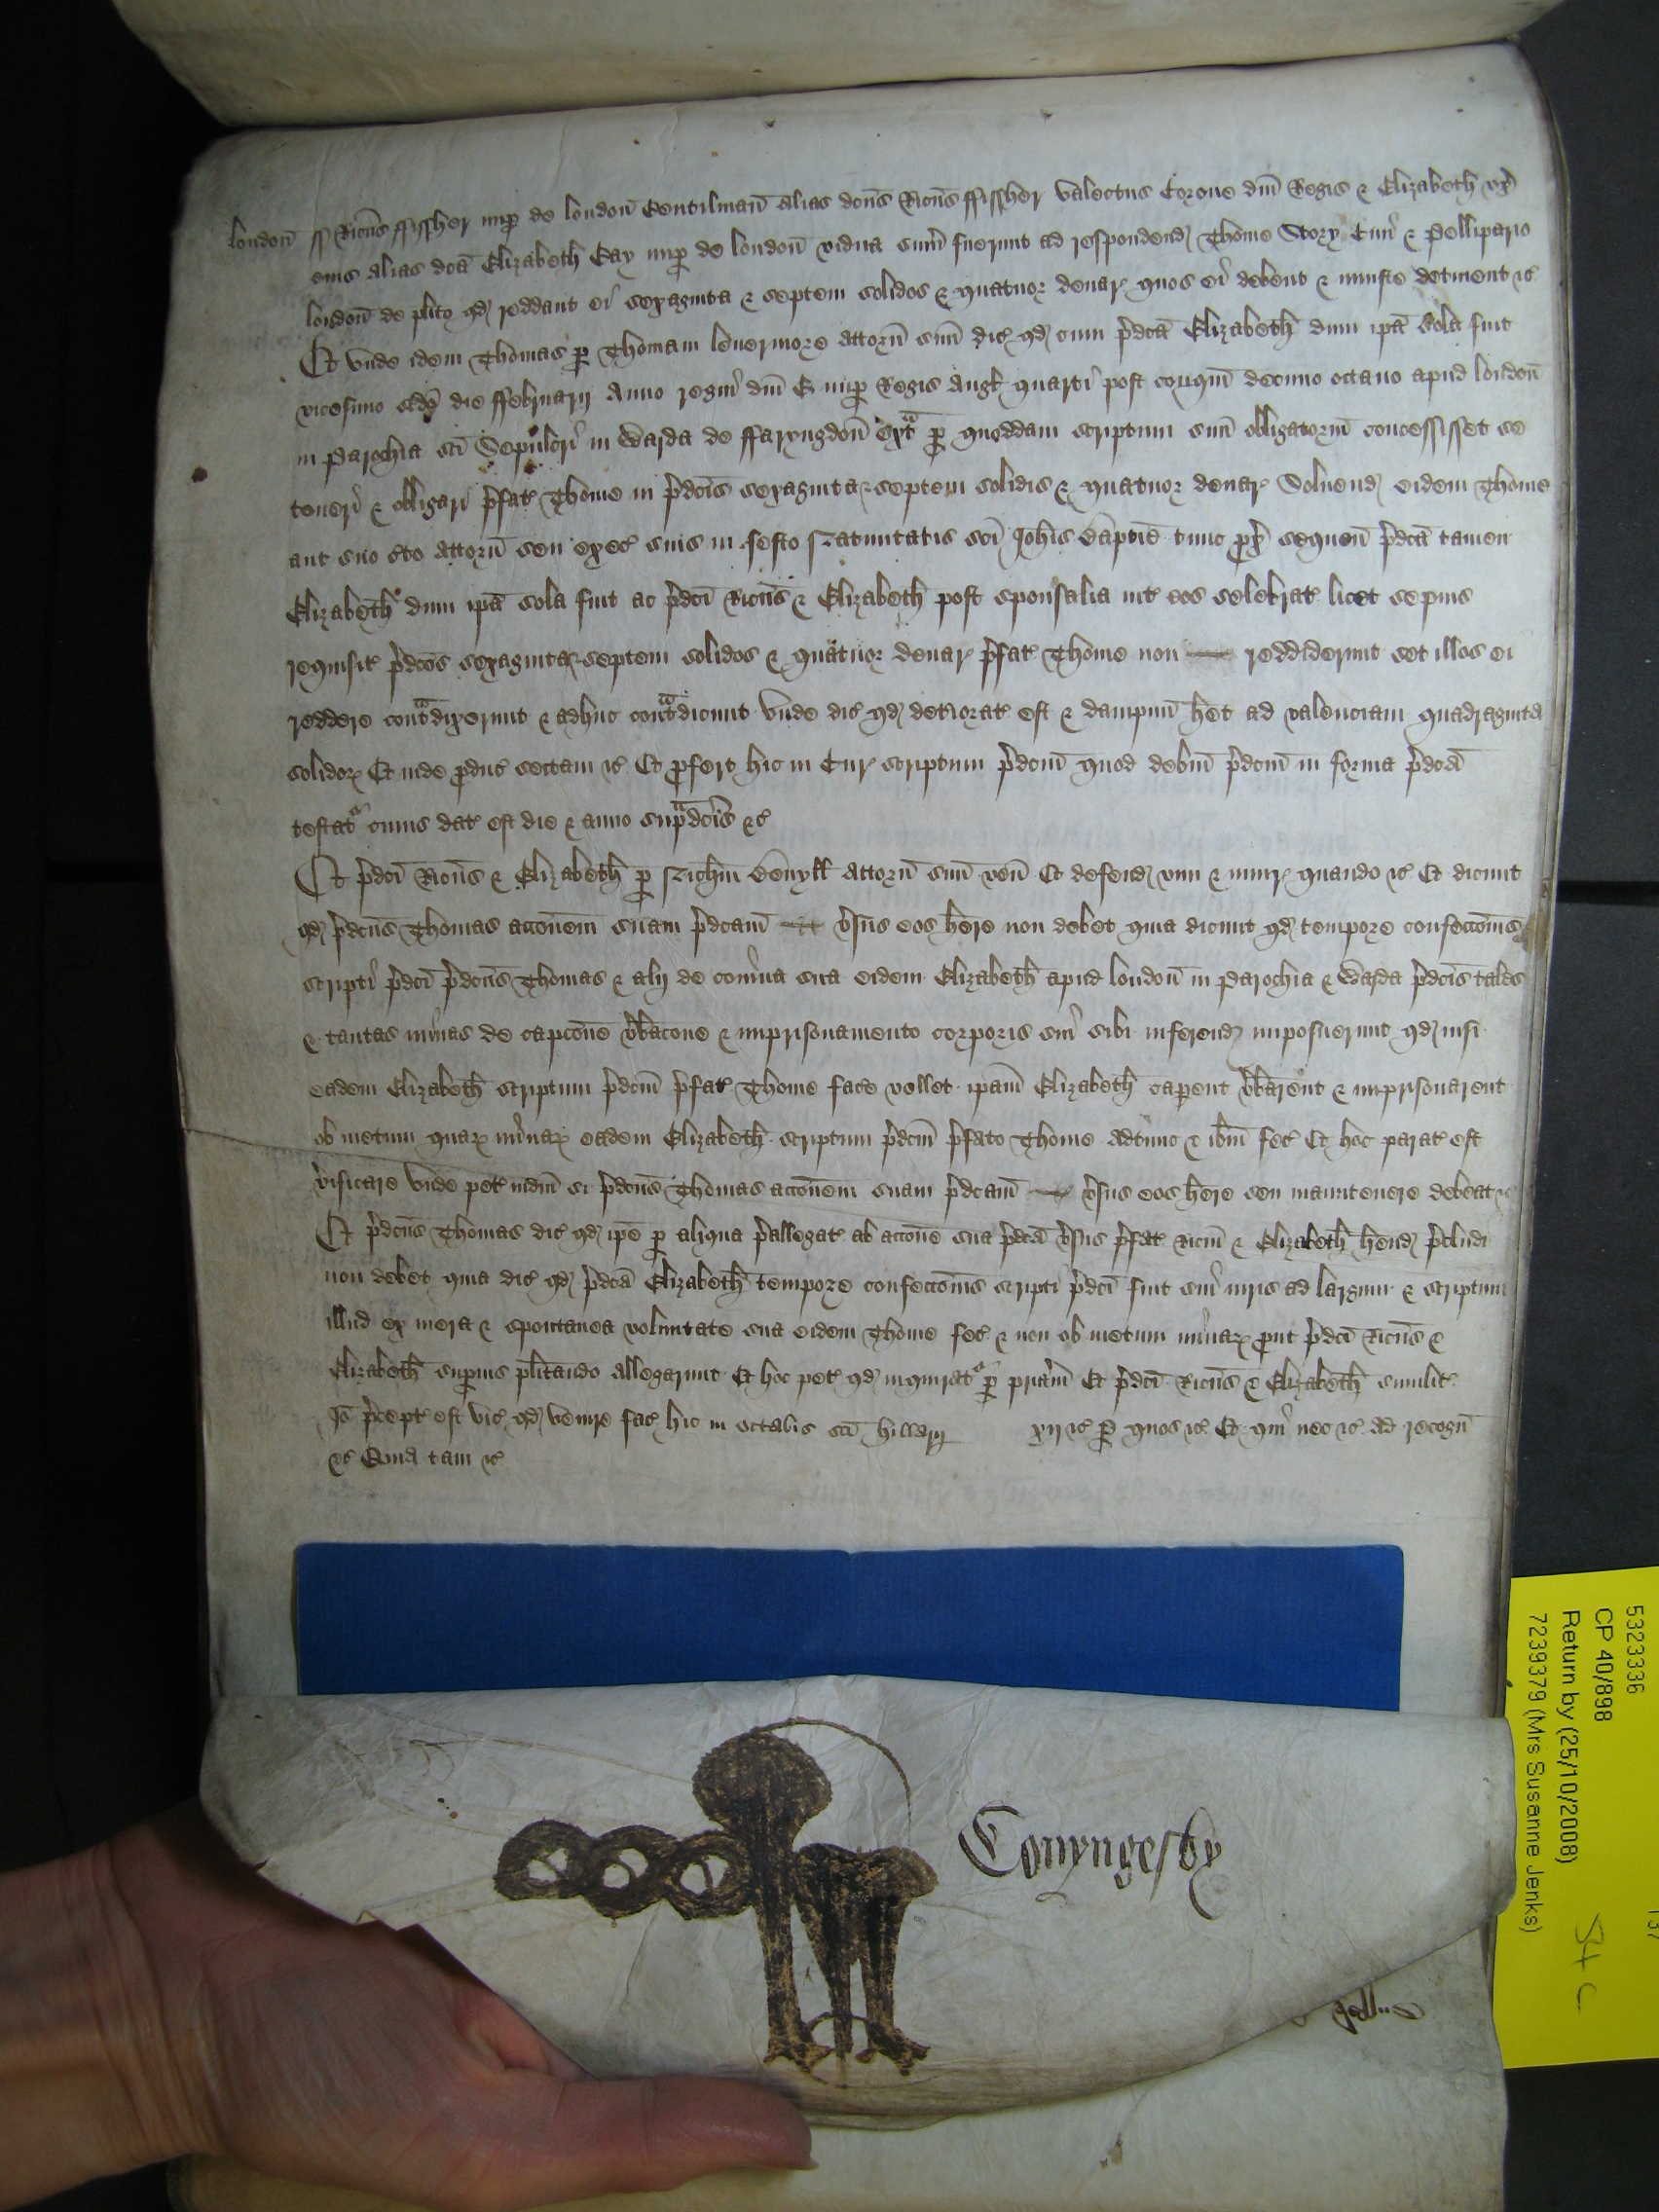 london̄ ss Ric̄us ffissher nup̱ de london̄ Gentilman̄ alias dc̄us Ric̄us ffissher valectus Corone dn̄i Regis & Elizabeth ux̄
eius alias dc̄a Elizabeth Gay nup̱ de london̄ vidua sum̄ fuerunt ad respondend Thome Story Civi & Pellipario
london̄ de pl̄ito qd reddant ei sexaginta & septem solidos & quatuor denar quos ei debent & iniuste detinent &c
Et unde idem Thomas p̱ Thomam levermore attorn̄ suū dic̄ qd cum p̄dc̄a Elizabeth dum ip̄a sola fuit
vicesimo die ffebruarij Anno regni dn̄i E nup̱ Regis Angl̄ quarti post conqm̄ decimo octavo apud london̄
in parochia sc̄i Sepulcri in Warda de ffaryngdon̄ ext̄ p̱ quoddam scriptum suū obligatoriū concessisset se
teneri & obligari p̄fat̄ Thome in p̄dc̄is sexaginta & septem solidis & quatuor denar Solvend eidem Thome
aut suo c̄to attorn̄ seu exec̄ suis in festo Nativitatis sc̄i Joh̄is Bap̄tie tunc p̱x̄ sequen̄ p̄dc̄a tamen
Elizabeth dum ip̄a sola fuit ac p̄dc̄i Ric̄us & Elizabeth post sponsalia int̄ eos celebrat̄ licet sepius
requisit̄ p̄dc̄os sexaginta & septem solidos & quatuor denar p̄fat̄ Thome non reddiderunt set illos ei
reddere contᵃdixerunt & adhuc contᵃdicunt unde dic̄ qd deteriorat̄ est & dampnū h̄et ad valenciam quadraginta
solidor Et inde p̱duc̄ sectam &c Et p̱fert hic in Cur scriptum p̄dc̄m̄ quod debm̄ p̄dc̄m̄ in forma p̄dc̄a
testat̄ cuius dat̄ est die & anno sup̱ᵃdc̄is &c
Et p̄dc̄i Ric̄us & Elizabeth p̱ Nich̄m attorn̄ suū ven̄ Et defend vim & iniur quando &c Et dicunt
qd p̄dc̄us Thomas acc̄onem suam p̄dc̄am v̄sus eos h̄ere non debet quia dicunt qd tempore confecc̄onis
scripti p̄dc̄i p̄dc̄us Thomas & alij de covina sua eidem Elizabeth apud london̄ in parochia & Warda p̄dc̄is tales
& tantas minas de capc̄one v̄b̄acone & imprisonamento corporis sui sibi inferend imposuerunt qd nisi
eadem Elizabeth scriptum p̄dc̄m̄ p̄fat̄ Thome fac̄e vellet ip̄am Elizabeth cap̱ent v̄b̄arent & imprisonarent
ob metum quar minar eadem Elizabeth scriptum p̄dc̄m̄ p̄fato Thome adtunc & ib̄m fec̄ Et hoc parat̄ est
v̄ificare unde pet̄ iudm̄ si p̄dc̄us Thomas acc̄onem suam p̄dc̄am v̄sus eos h̄ere seu manutenere debeat &c
Et p̄dc̄us Thomas dic̄ qd ip̄e p̱ aliqua p̄allegat̄ ab acc̄one sua p̄dc̄a v̄sus p̄fat̄ Ric̄m & Elizabeth h̄end p̄cludi
non debet quia dic̄ qd p̄dc̄a Elizabeth tempore confecc̄onis scripti p̄dc̄i fuit sui iuris ad largum & scriptum
illud ex mera & spontanea voluntate sua eidem Thome fec̄ & non ob metum minar p̱ut p̄dc̄i Ric̄us &
Elizabeth sup̱ius pl̄itando allegarunt Et hoc pet̄ qd inquirat̄ p̱ pr̄iam Et p̄dc̄i Ric̄us & Elizabeth similit̄
Jō p̄cept̄ est vic̄ qd venire fac̄ hic in octabis sc̄i hillarij xij &c p̱ quos &c Et qui nec &c ad recogn̄
&c Quia tam &c
Conyngesby
5323336
CP 40/898
Return by (25/10/2008)
7239379 (Mrs Susanne Jenks)